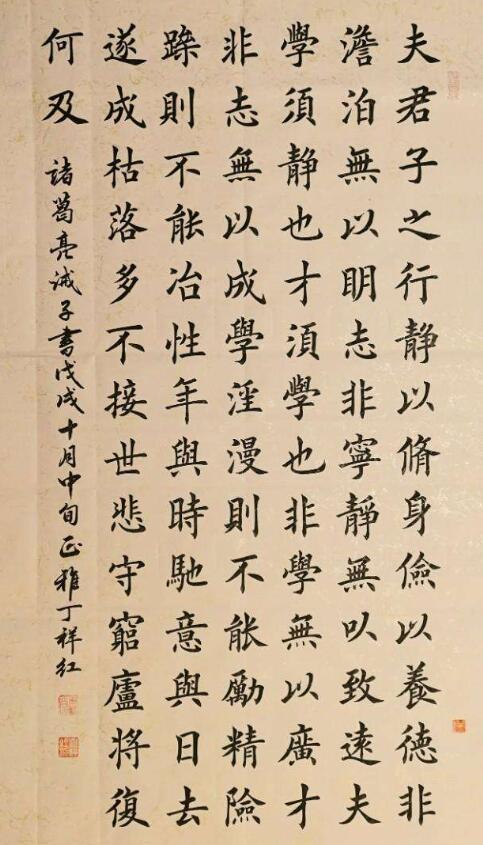 夫君子之行靜以脩身儉以養德非
澹泊無以明志非寧靜無以致遠夫
學須靜也才須學也非學無以廣才
非志無以成學淫漫則不能勵精險
躁則不能冶性年與時馳意與日去
遂成枯落多不接世悲守窮廬將復
何及
諸葛亮誡子書戊戌十月中旬正雅丁祥红